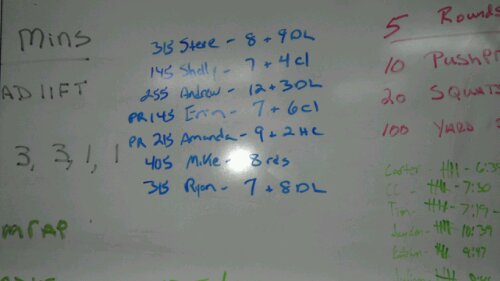 Mins
ADLIFT
3, 3, 1, 1
MRAP
315 Steve - 8 + 9 DL
145 Shelly - 7 + 4 cl
255 Andrew - 12 + 3 DL
PR 145 Erin - 7 + 6 cl
PR 215 Amanda - 9 + 2 HC
405 Mike - 8 rds
315 Ryan - 7 + 8 DL
5 Rounds
10 PushPr
20 Squat
100 Yard
Carter - 6:3
CC - 7:30
Tim - 7:19
10:39
9:47